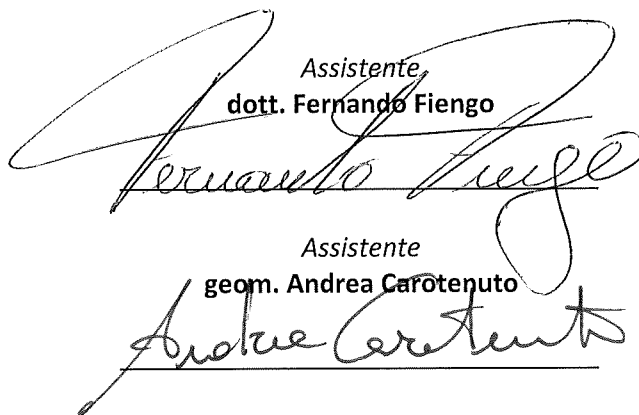 Assistente
dott. Fernando Fiengo
Fernando Fiengo
Assistente
geom. Andrea Carotenuto
Andrea Carotenuto